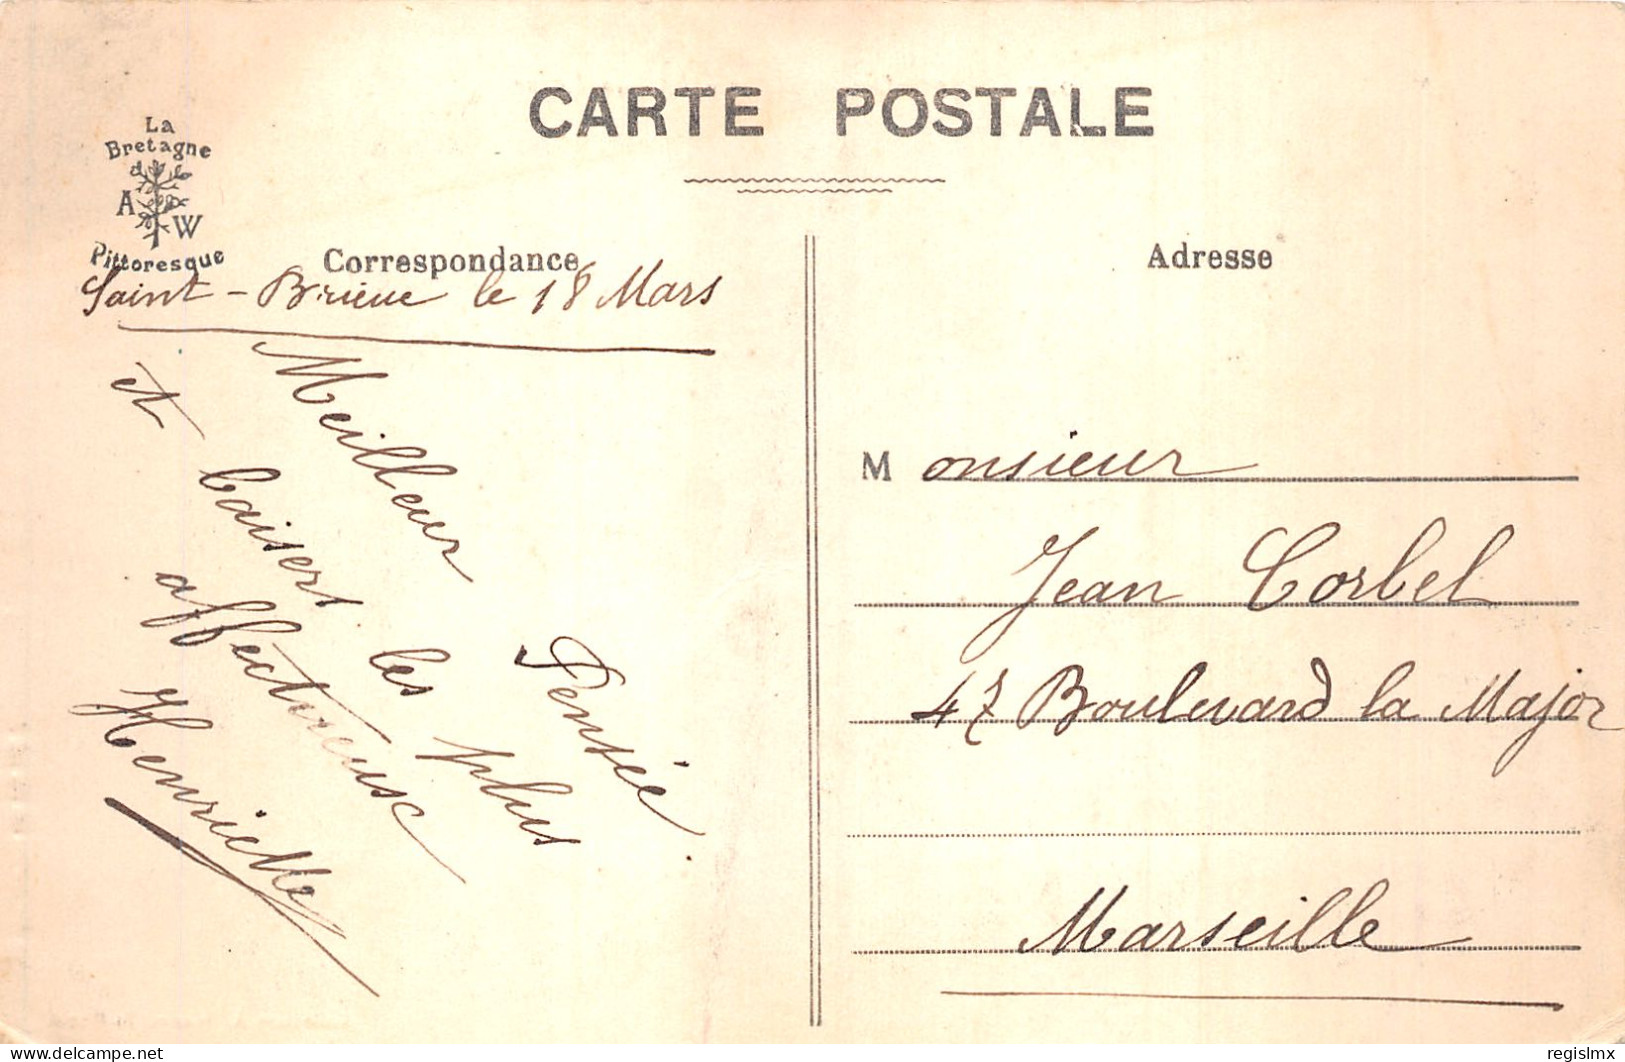 CARTE POSTALE
La
Bretagne
A W
Pittoresque
Correspondance
Adresse
Saint-Brieuc le 18 Mars
Meilleur Pensée
et baisers les plus
affectueuse
Henriette
Monsieur
Jean Corbel
47 Boulevard la Major
Marseille
regislmx